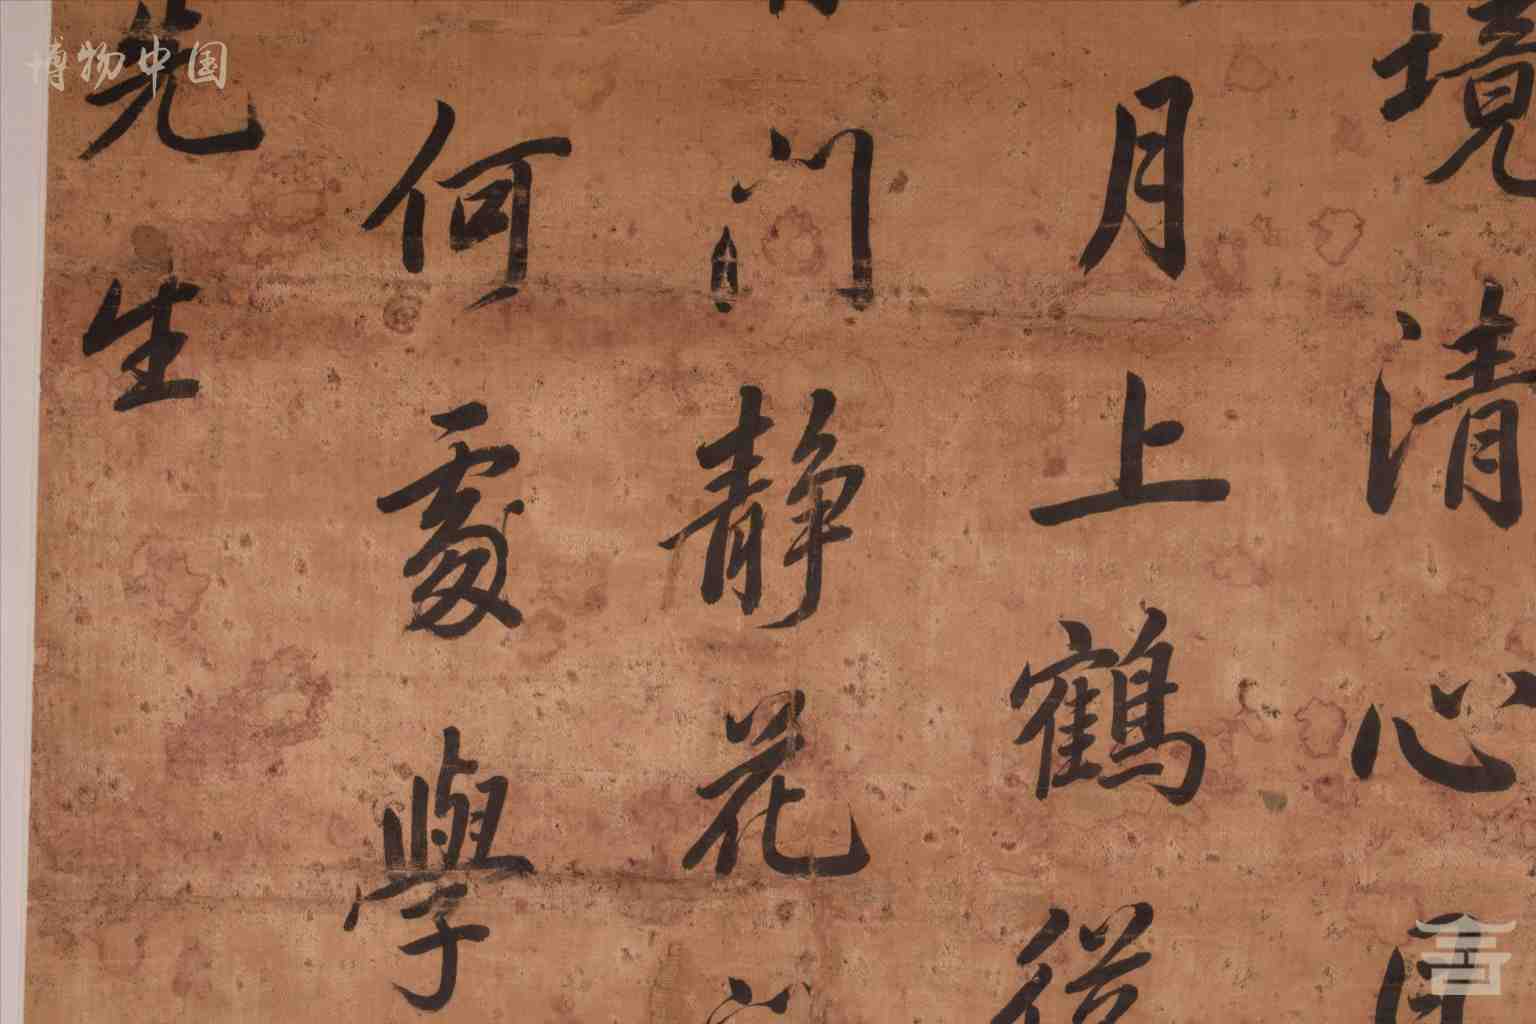 境清心
月上鶴從
門静花
何處學
先生
博物中国